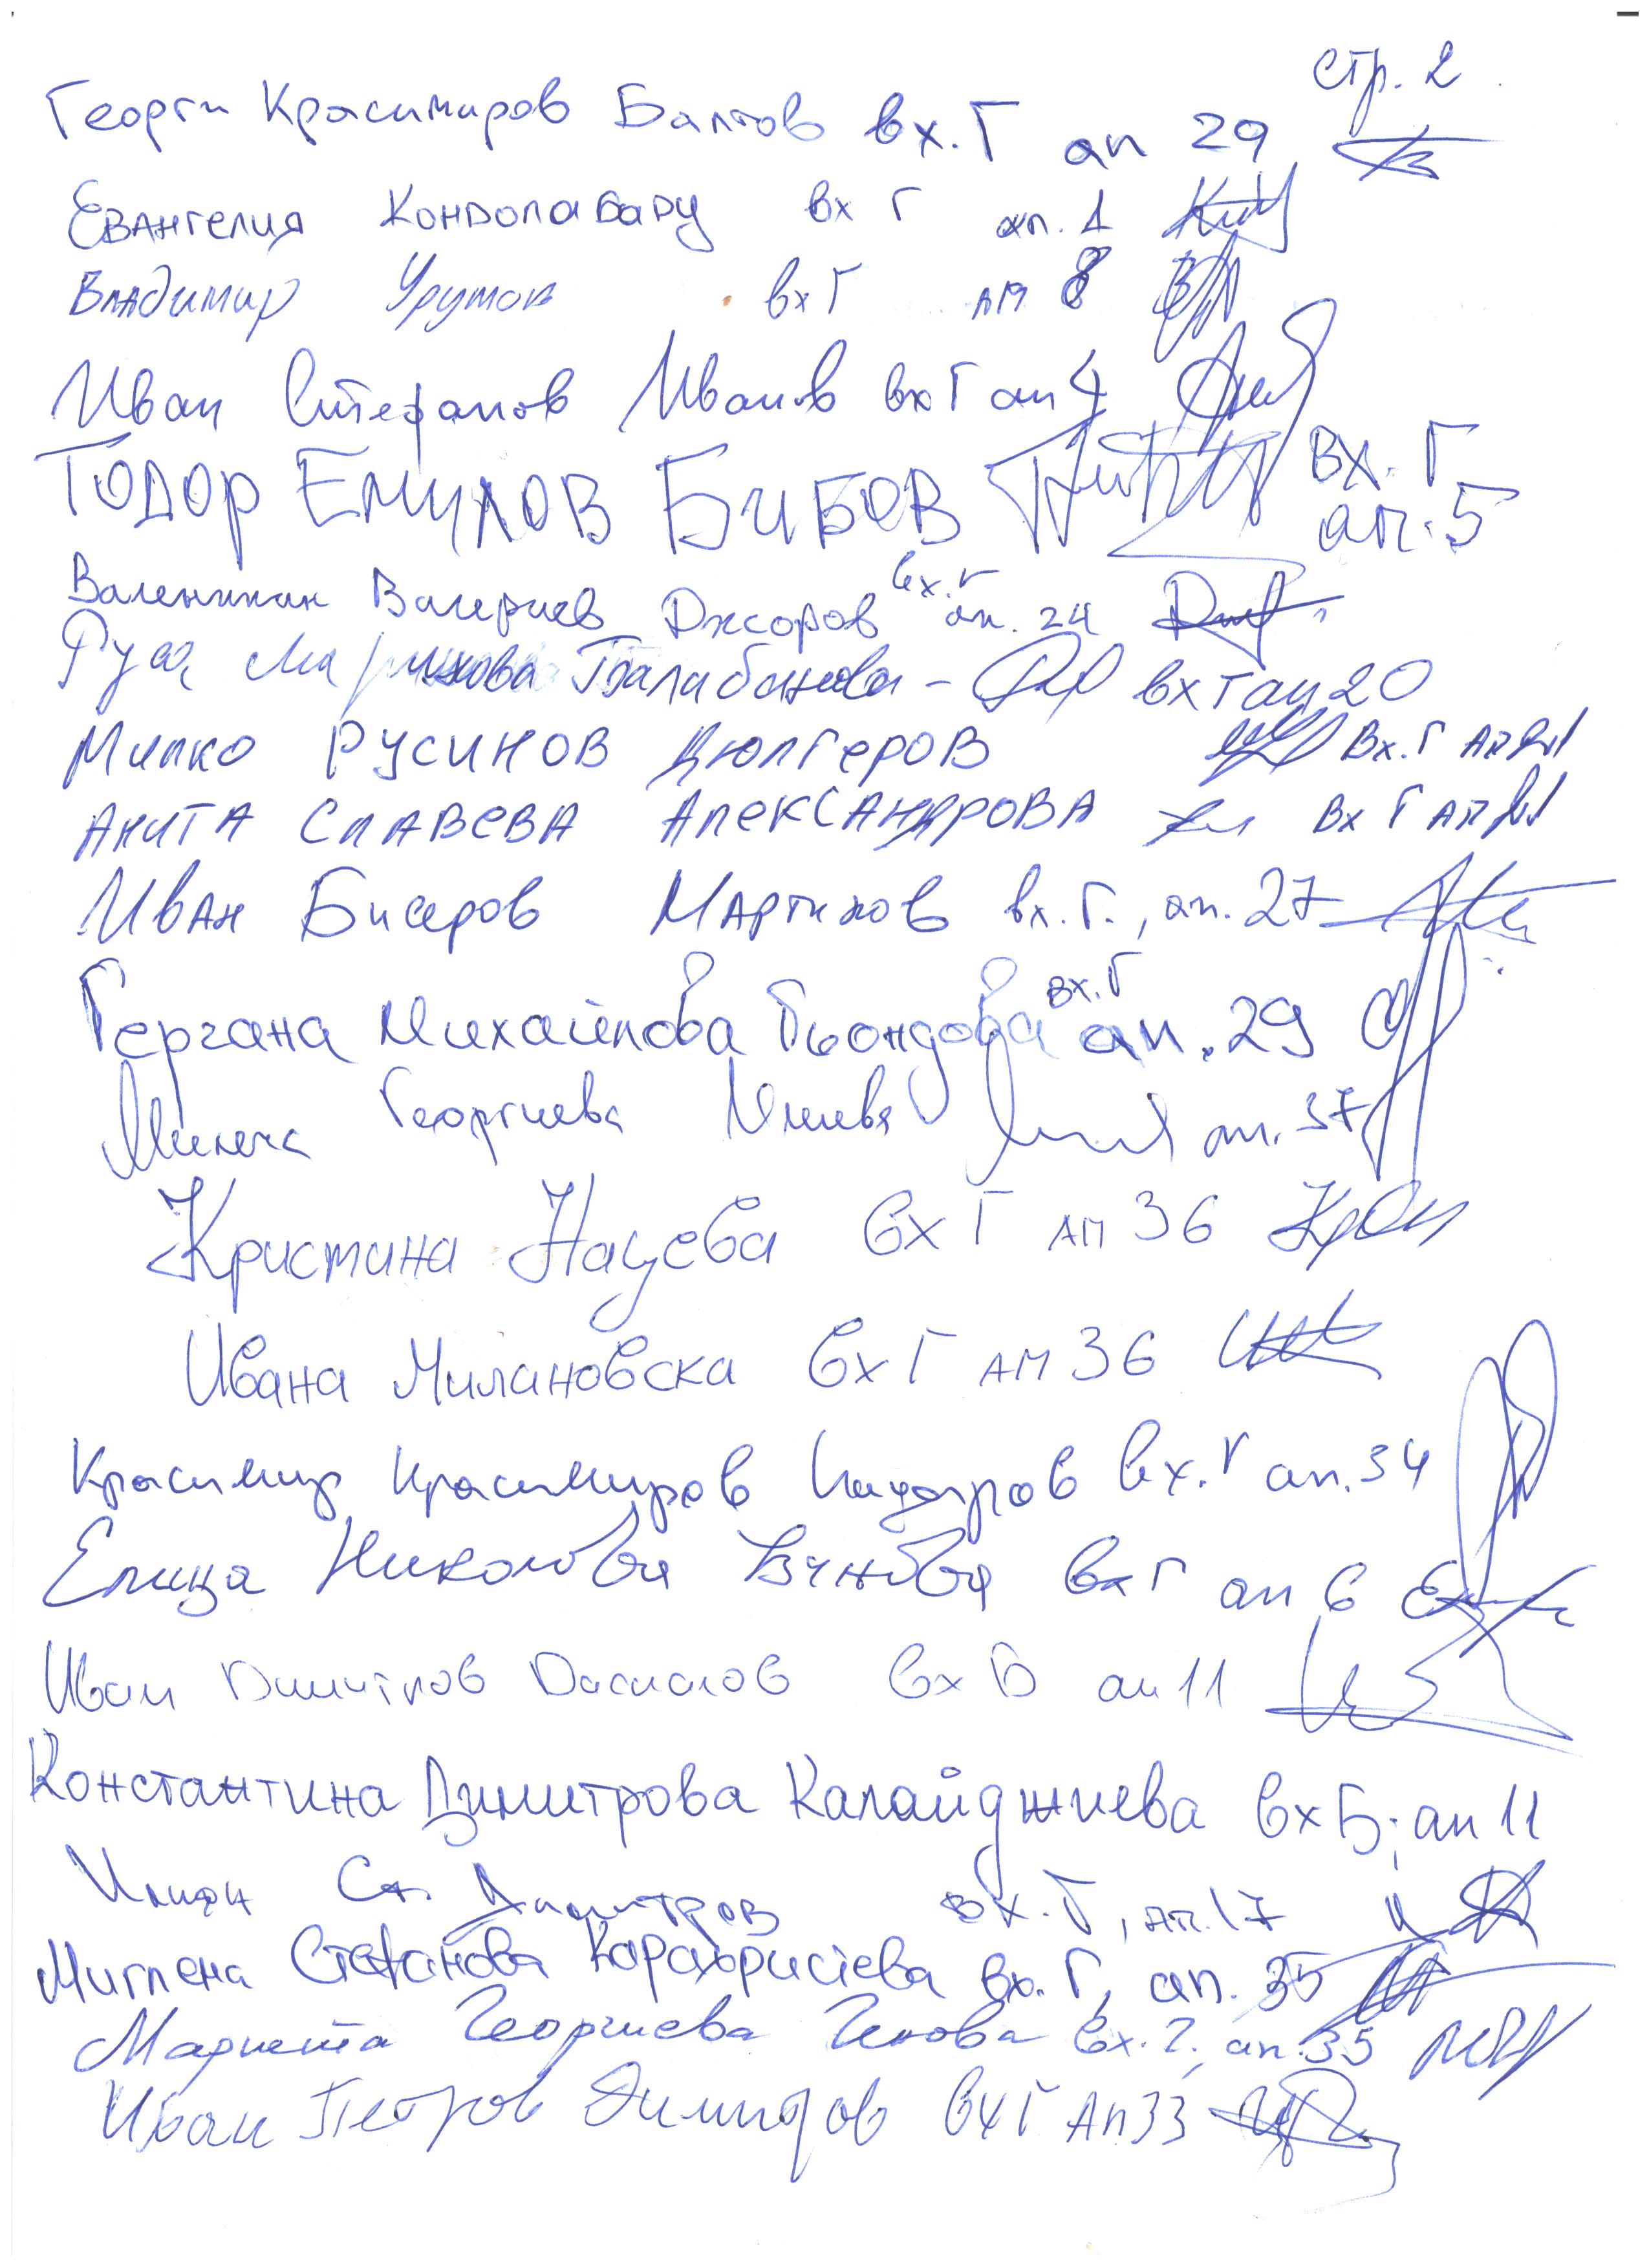 стр. 2
Георги Красимиров Балтов вх. Г ап 29
Евангелия Кондолабару вх Г ап. 1
Владимир Урумов вх Г ап 8
Иван Стефанов Иванов вх Г ап 4
Тодор Емилов Бибов вх. Г ап. 5
Валентин Валериев Джоров вх. Г ап. 24
Руса Маринова Балабанова - вх Г ап 20
Милко Русинов Дюлгеров Вх. Г Ап
Анита Славева Александрова Вх Г Ап
Иван Бисеров Мартинов вх. Г., ап. 27
Гергана Михайлова Бьондова вх. Г ап. 29
Милена Георгиева ап. 37
Кристина Нацева вх Г ап 36
Ивана Милановска вх Г ап 36
Красимир Красимиров вх. Г ап. 34
Елица Николова вх Г ап 6
Иван Димитров вх Б ап 11
Константина Димитрова Калайджиева вх Б; ап 11
Илиян Ст. Димитров вх. Г, ап. 17
Миглена Стефанова Карахристева вх. Г, ап. 35
Мариета Георгиева Генова вх. Г. ап. 35
Иван Петров вх Г Ап 33